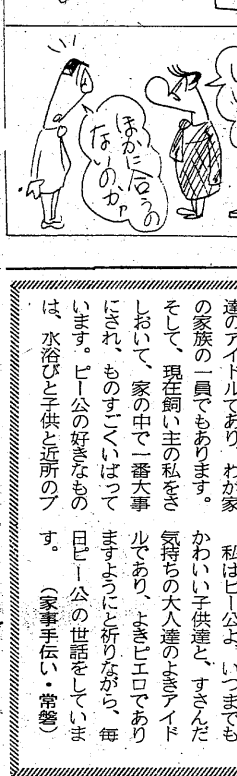 ほかに合うの
ないのかァ
達のアイドルであり、わが家
の家族の一員でもあります。
そして、現在飼い主の私をさ
しおいて、家の中で一番大事
にされ、ものすごくいばって
います。ピー公の好きなもの
は、水浴びと子供と近所のプ
私はピー公よ、いつまでも
かわいい子供達と、すさんだ
気持ちの大人達のよきアイド
ルであり、よきピエロであり
ますようにと祈りながら、毎
日ピー公の世話をしていま
す。
(家事手伝い・常磐)